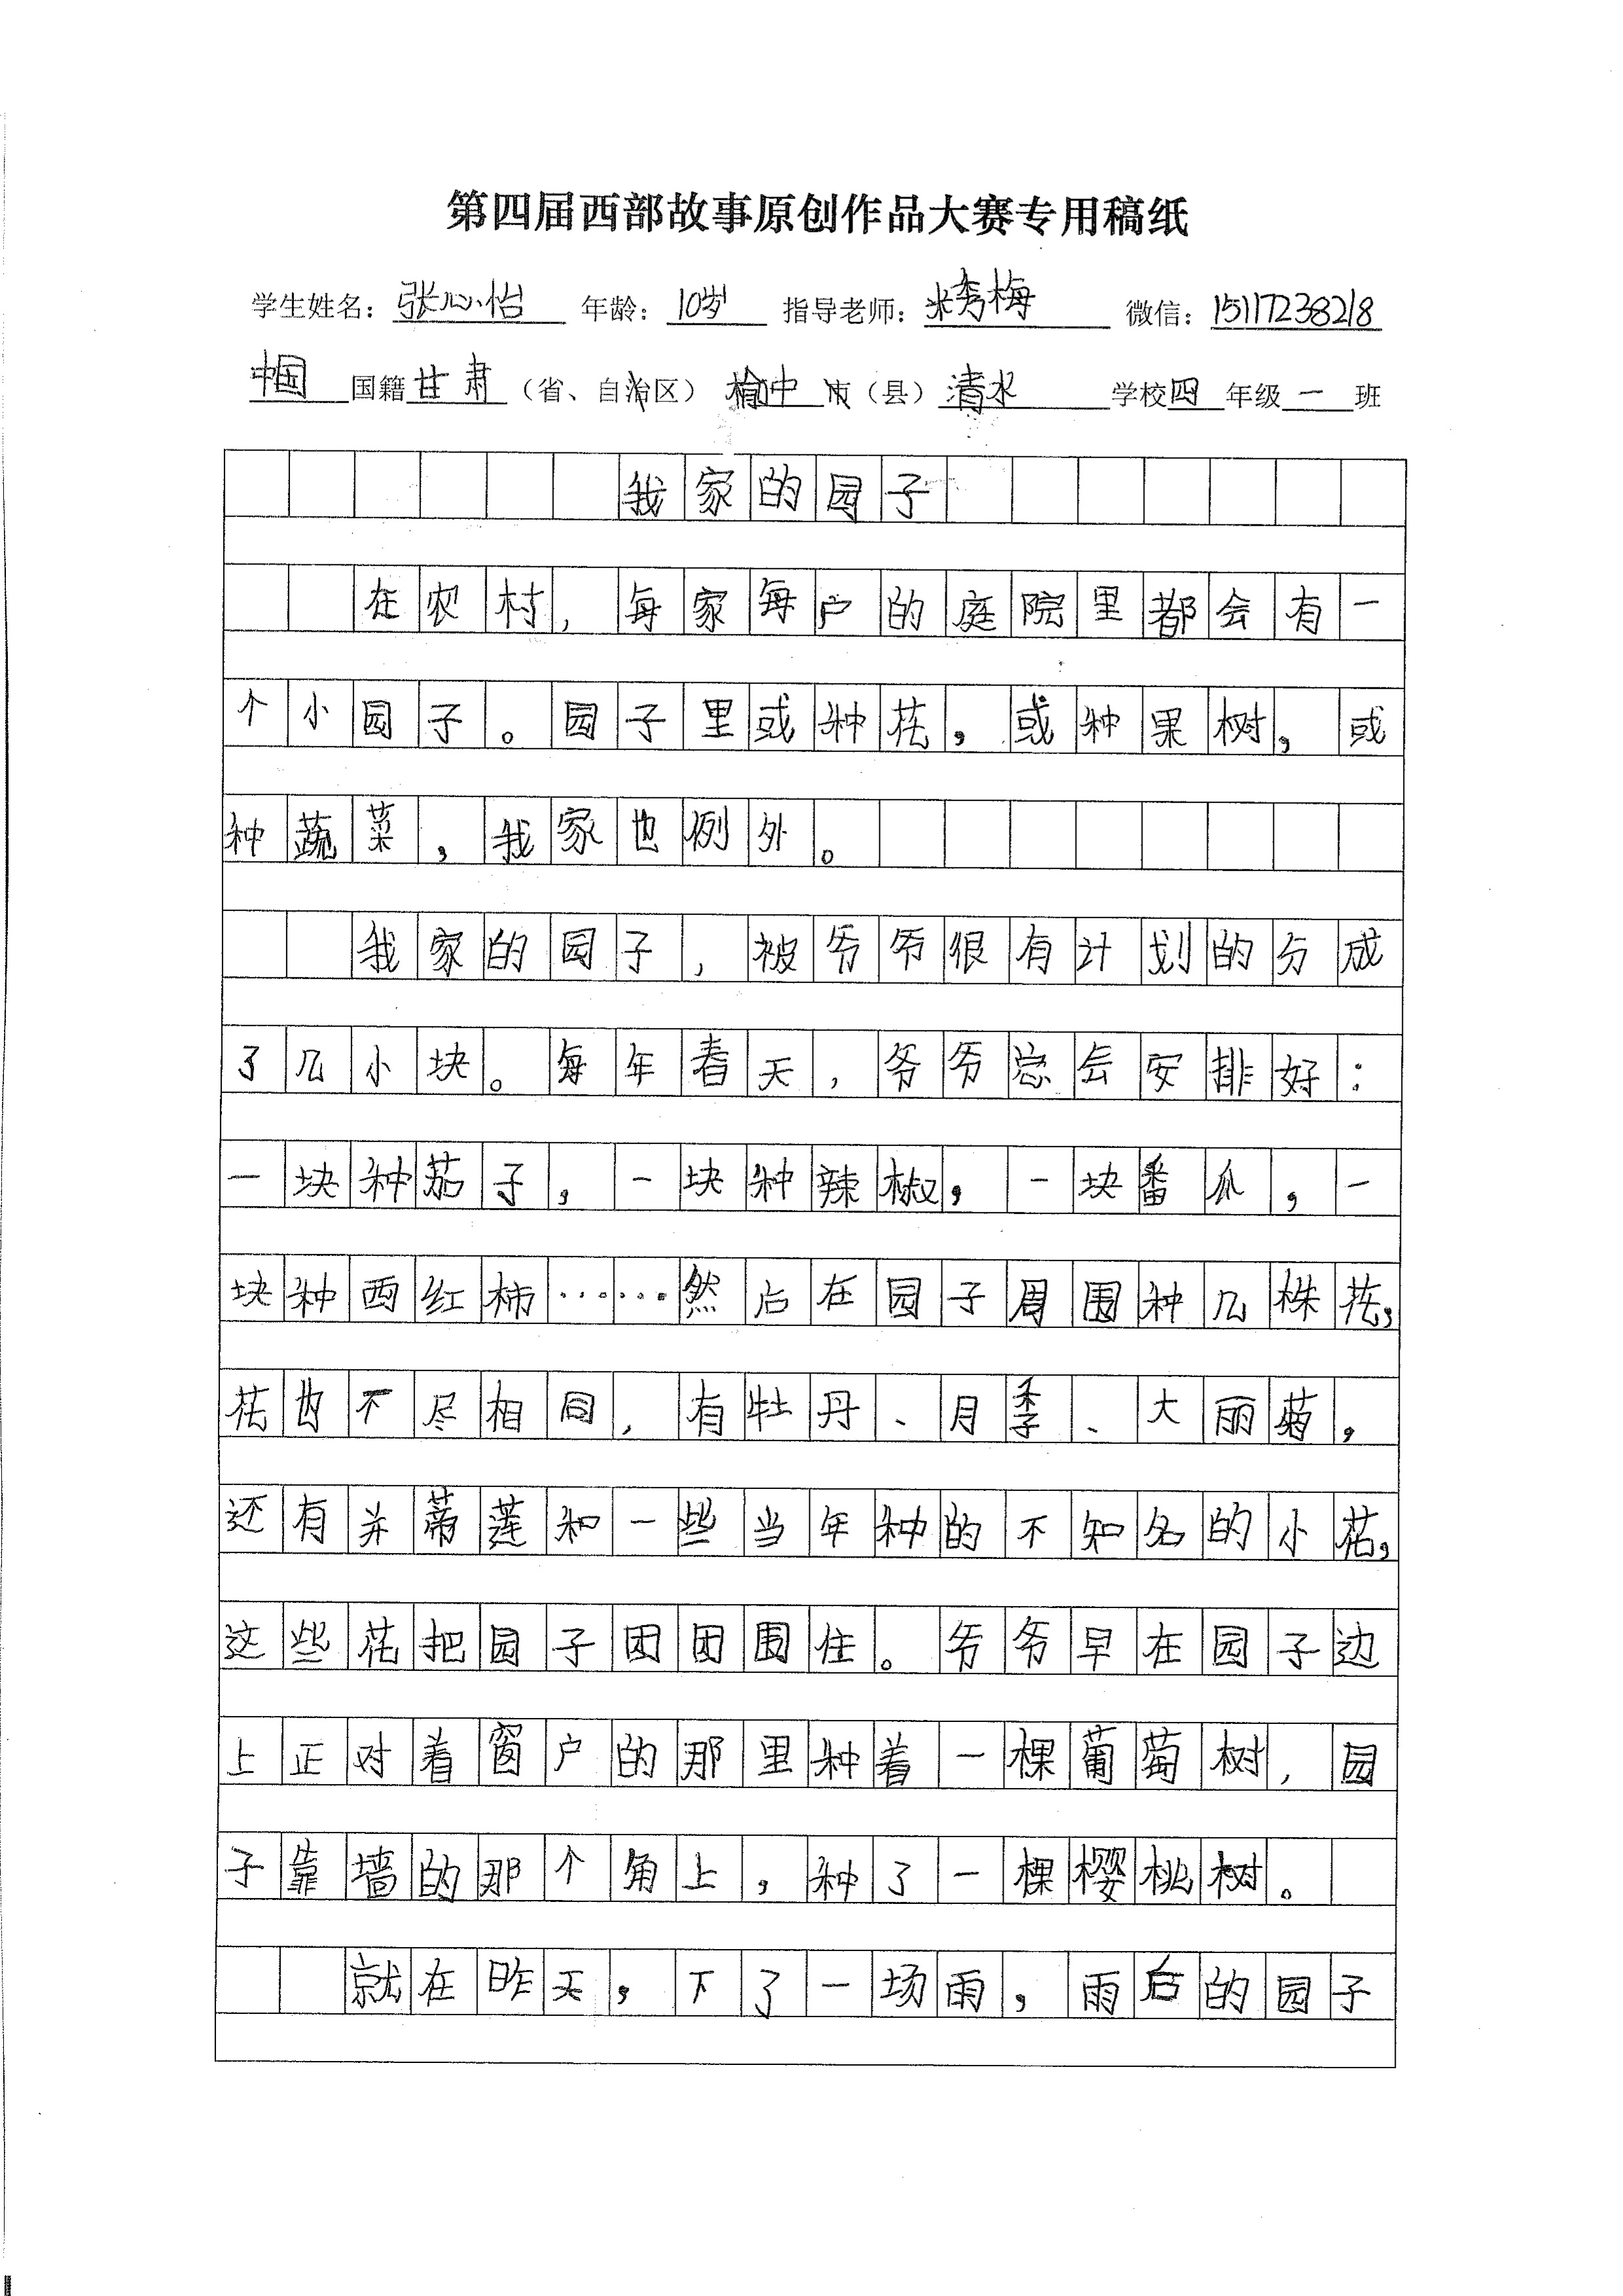 第四届西部故事原创作品大赛专用稿纸
学生姓名：张心怡 年龄：10岁 指导老师：米秀梅 微信：15117238218
中国国籍甘肃（省、自治区）榆中市（县）清水学校四年级一班
我家的园子
在农村，每家每户的庭院里都会有一
个小园子。园子里或种花，或种果树，或
种蔬菜，我家也例外。
我家的园子，被爷爷很有计划的分成
了几小块。每年春天，爷爷总会安排好：
一块种茄子，一块种辣椒，一块番瓜，一
块种西红柿……然后在园子周围种几株花，
花也不尽相同，有牡丹、月季、大丽菊，
还有并蒂莲和一些当年种的不知名的小花，
这些花把园子团团围住。爷爷早在园子边
上正对着窗户的那里种着一棵葡萄树，园
子靠墙的那个角上，种了一棵樱桃树。
就在昨天，下了一场雨，雨后的园子